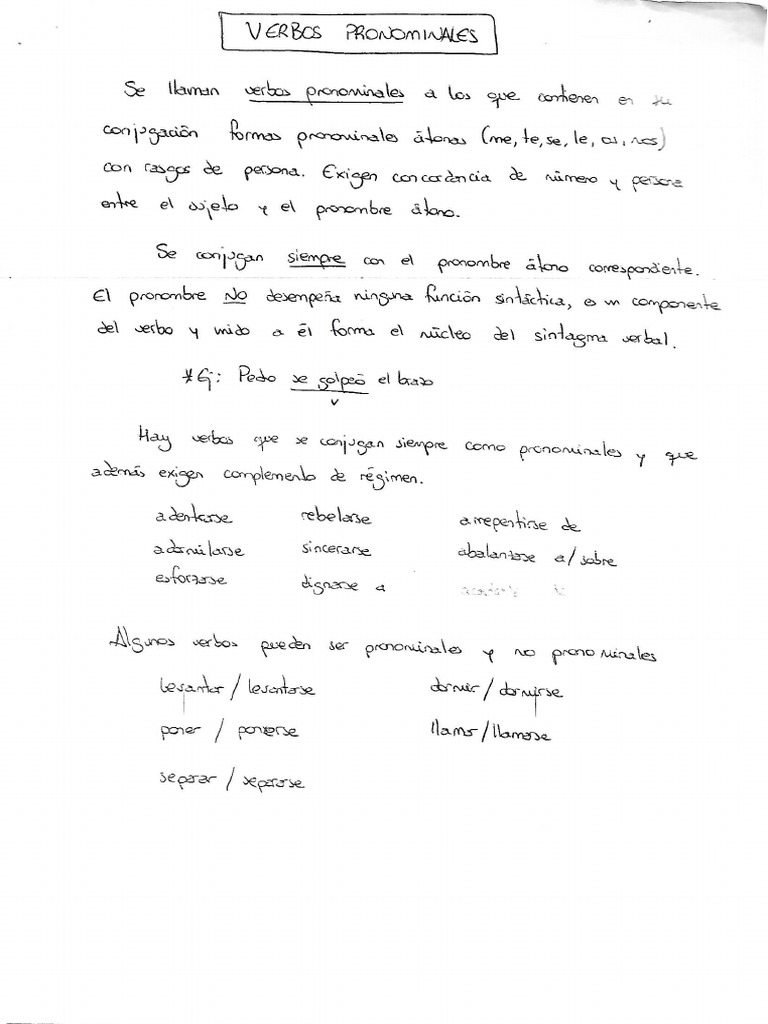 VERBOS PRONOMINALES
Se llaman verbos pronominales a los que contienen en su
conjugación formas pronominales átonas (me, te, se, le, os, nos)
con rasgos de persona. Exigen concordancia de número y persona
entre el sujeto y el pronombre átono.
Se conjugan siempre con el pronombre átono correspondiente.
El pronombre NO desempeña ninguna función sintáctica, es un componente
del verbo y unido a él forma el núcleo del sintagma verbal.
*Ej: Pedro se golpeó el brazo
v
Hay verbos que se conjugan siempre como pronominales y que
además exigen complemento de régimen.
adentrarse rebelarse arrepentirse de
adormilarse sincerarse abalanzarse a/sobre
esforzarse dignarse a
Algunos verbos pueden ser pronominales y no pronominales
levantar / levantarse dormir / dormirse
poner / ponerse llamar / llamarse
separar / separarse